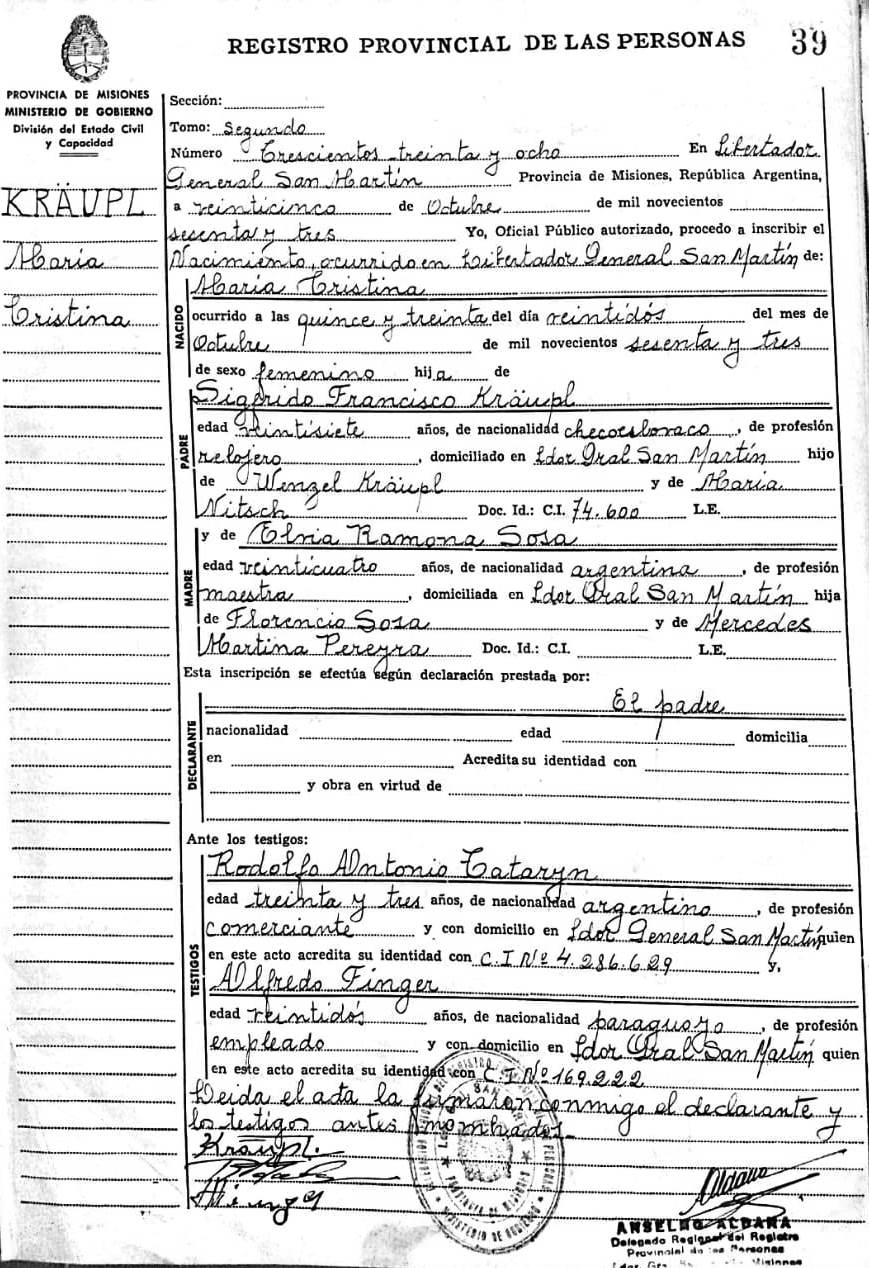 REGISTRO PROVINCIAL DE LAS PERSONAS 39
PROVINCIA DE MISIONES
MINISTERIO DE GOBIERNO
División del Estado Civil
y Capacidad
KRÄUPL
María
Cristina
Sección:
Tomo: Segundo
Número Trescientos treinta y ocho En Libertador
General San Martín Provincia de Misiones, República Argentina,
a veinticinco de Octubre de mil novecientos
sesenta y tres Yo, Oficial Público autorizado, procedo a inscribir el
Nacimiento, ocurrido en Libertador General San Martín de:
NACIDO
María Cristina
ocurrido a las quince y treinta del día veintidós del mes de
Octubre de mil novecientos sesenta y tres
de sexo femenino hija de
PADRE
Sigfrido Francisco Kräupl
edad veintisiete años, de nacionalidad checoeslovaco, de profesión
relojero, domiciliado en Ldor Gral San Martín hijo
de Wenzel Kräupl y de María
Nitsch Doc. Id.: C.I. 74.600 L.E.
MADRE
y de Elvia Ramona Sosa
edad veinticuatro años, de nacionalidad argentina, de profesión
maestra, domiciliada en Ldor Gral San Martín hija
de Florencio Sosa y de Mercedes
Martina Pereyra Doc. Id.: C.I. L.E.
Esta inscripción se efectúa según declaración prestada por:
DECLARANTE
El padre
nacionalidad edad domicilia
en Acredita su identidad con
y obra en virtud de
Ante los testigos:
TESTIGOS
Rodolfo Antonio Tataryn
edad treinta y tres años, de nacionalidad argentino, de profesión
comerciante y con domicilio en Ldor General San Martín quien
en este acto acredita su identidad con C.I Nº 4.286.629 y,
Alfredo Finger
edad veintidós años, de nacionalidad paraguayo, de profesión
empleado y con domicilio en Ldor Gral San Martín quien
en este acto acredita su identidad con C.I Nº 169.222
Leida el acta la firmaron conmigo el declarante y
los testigos antes nombrados
Kräupl.
Aldana
MINISTERIO DE GOBIERNO
ANSELMO ALDANA
Delegado Regional del Registro
Provincial de las Personas
Misiones